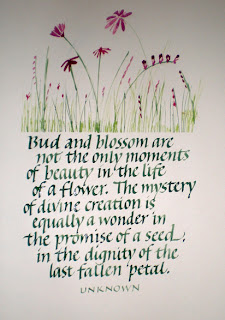 Bud and blossom are
not the only moments
of beauty in the life
of a flower. The mystery
of divine creation is
equally a wonder in
the promise of a seed;
in the dignity of the
last fallen petal.
UNKNOWN